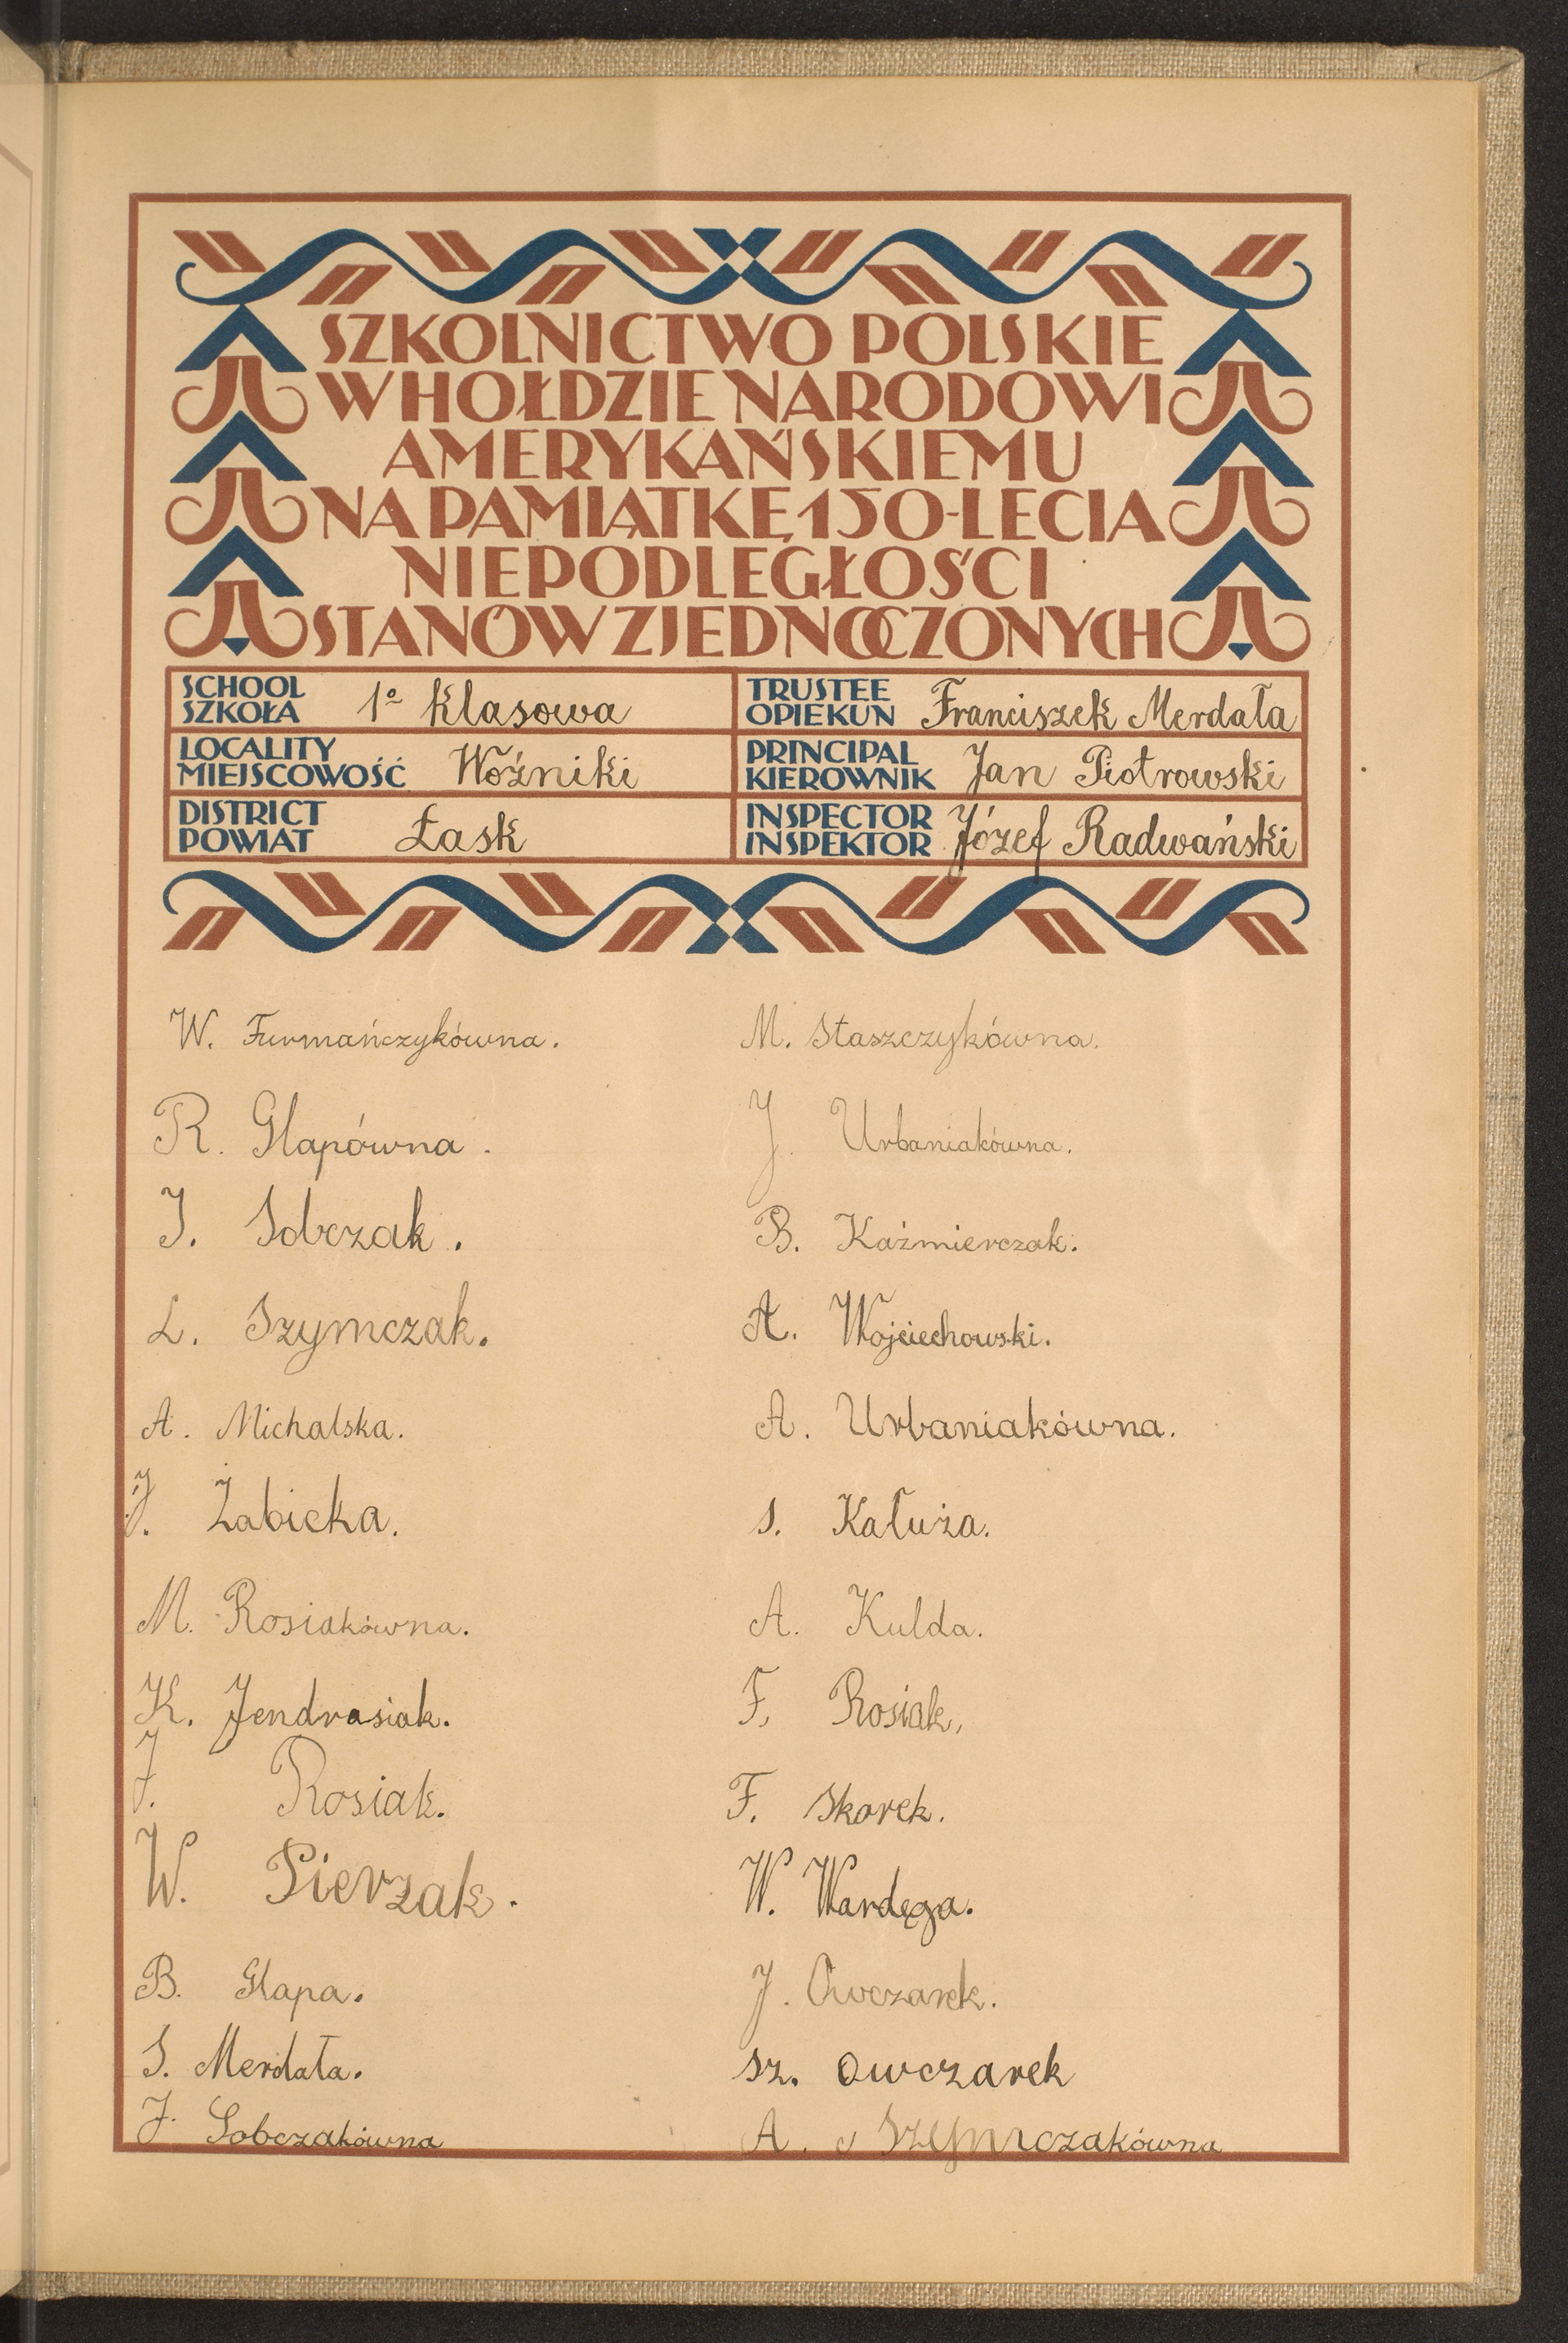 SZKOLNICTWO POLSKIE
W HOŁDZIE NARODOWI
AMERYKAŃSKIEMU
NA PAMIĄTKĘ 150-LECIA
NIEPODLEGŁOŚCI
STANÓW ZJEDNOCZONYCH
SCHOOL
SZKOŁA 1º klasowa
TRUSTEE
OPIEKUN Franciszek Merdała
LOCALITY
MIEJSCOWOŚĆ Woźniki
PRINCIPAL
KIEROWNIK Jan Piotrowski
DISTRICT
POWIAT Łask
INSPECTOR
INSPEKTOR Józef Radwański
W. Furmańczykówna.
R. Glapówna.
J. Sobczak.
L. Szymczak.
A. Michalska.
J. Żabicka.
M. Rosiakówna.
K. Jendrasiak.
J. Rosiak.
W. Pierzak.
B. Glapa.
S. Merdała.
J. Sobczakówna
M. Staszczykówna.
J. Urbaniakówna.
B. Kaźmierczak.
A. Wojciechowski.
A. Urbaniakówna.
S. Kałuża.
A. Kulda.
F. Rosiak.
F. Skorek.
W. Wardęga.
J. Owczarek.
Sz. Owczarek
A. Szymczakówna